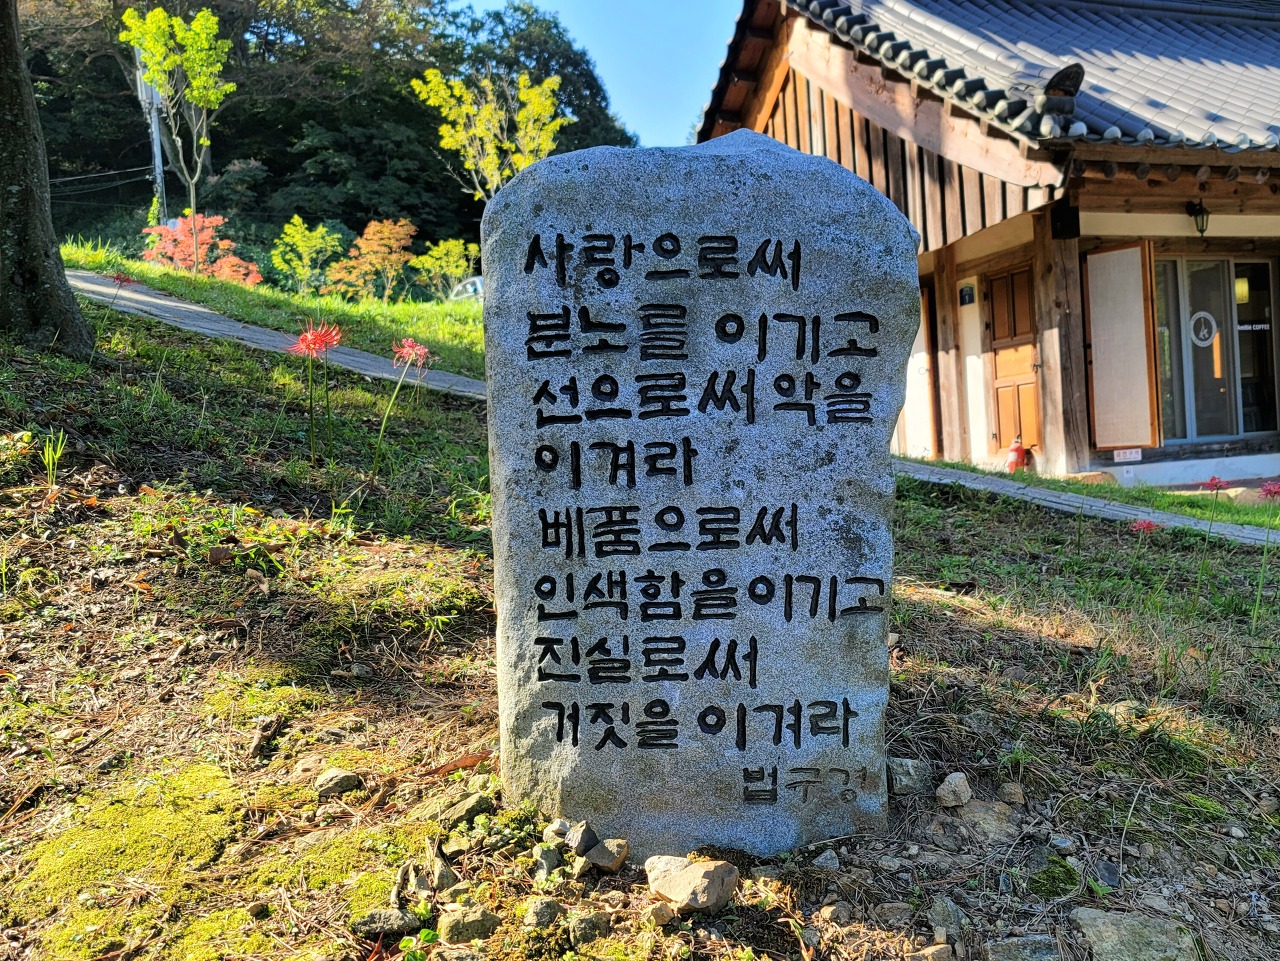 사랑으로써
분노를 이기고
선으로써 악을
이겨라
베품으로써
인색함을 이기고
진실로써
거짓을 이겨라
법구경
COFFEE